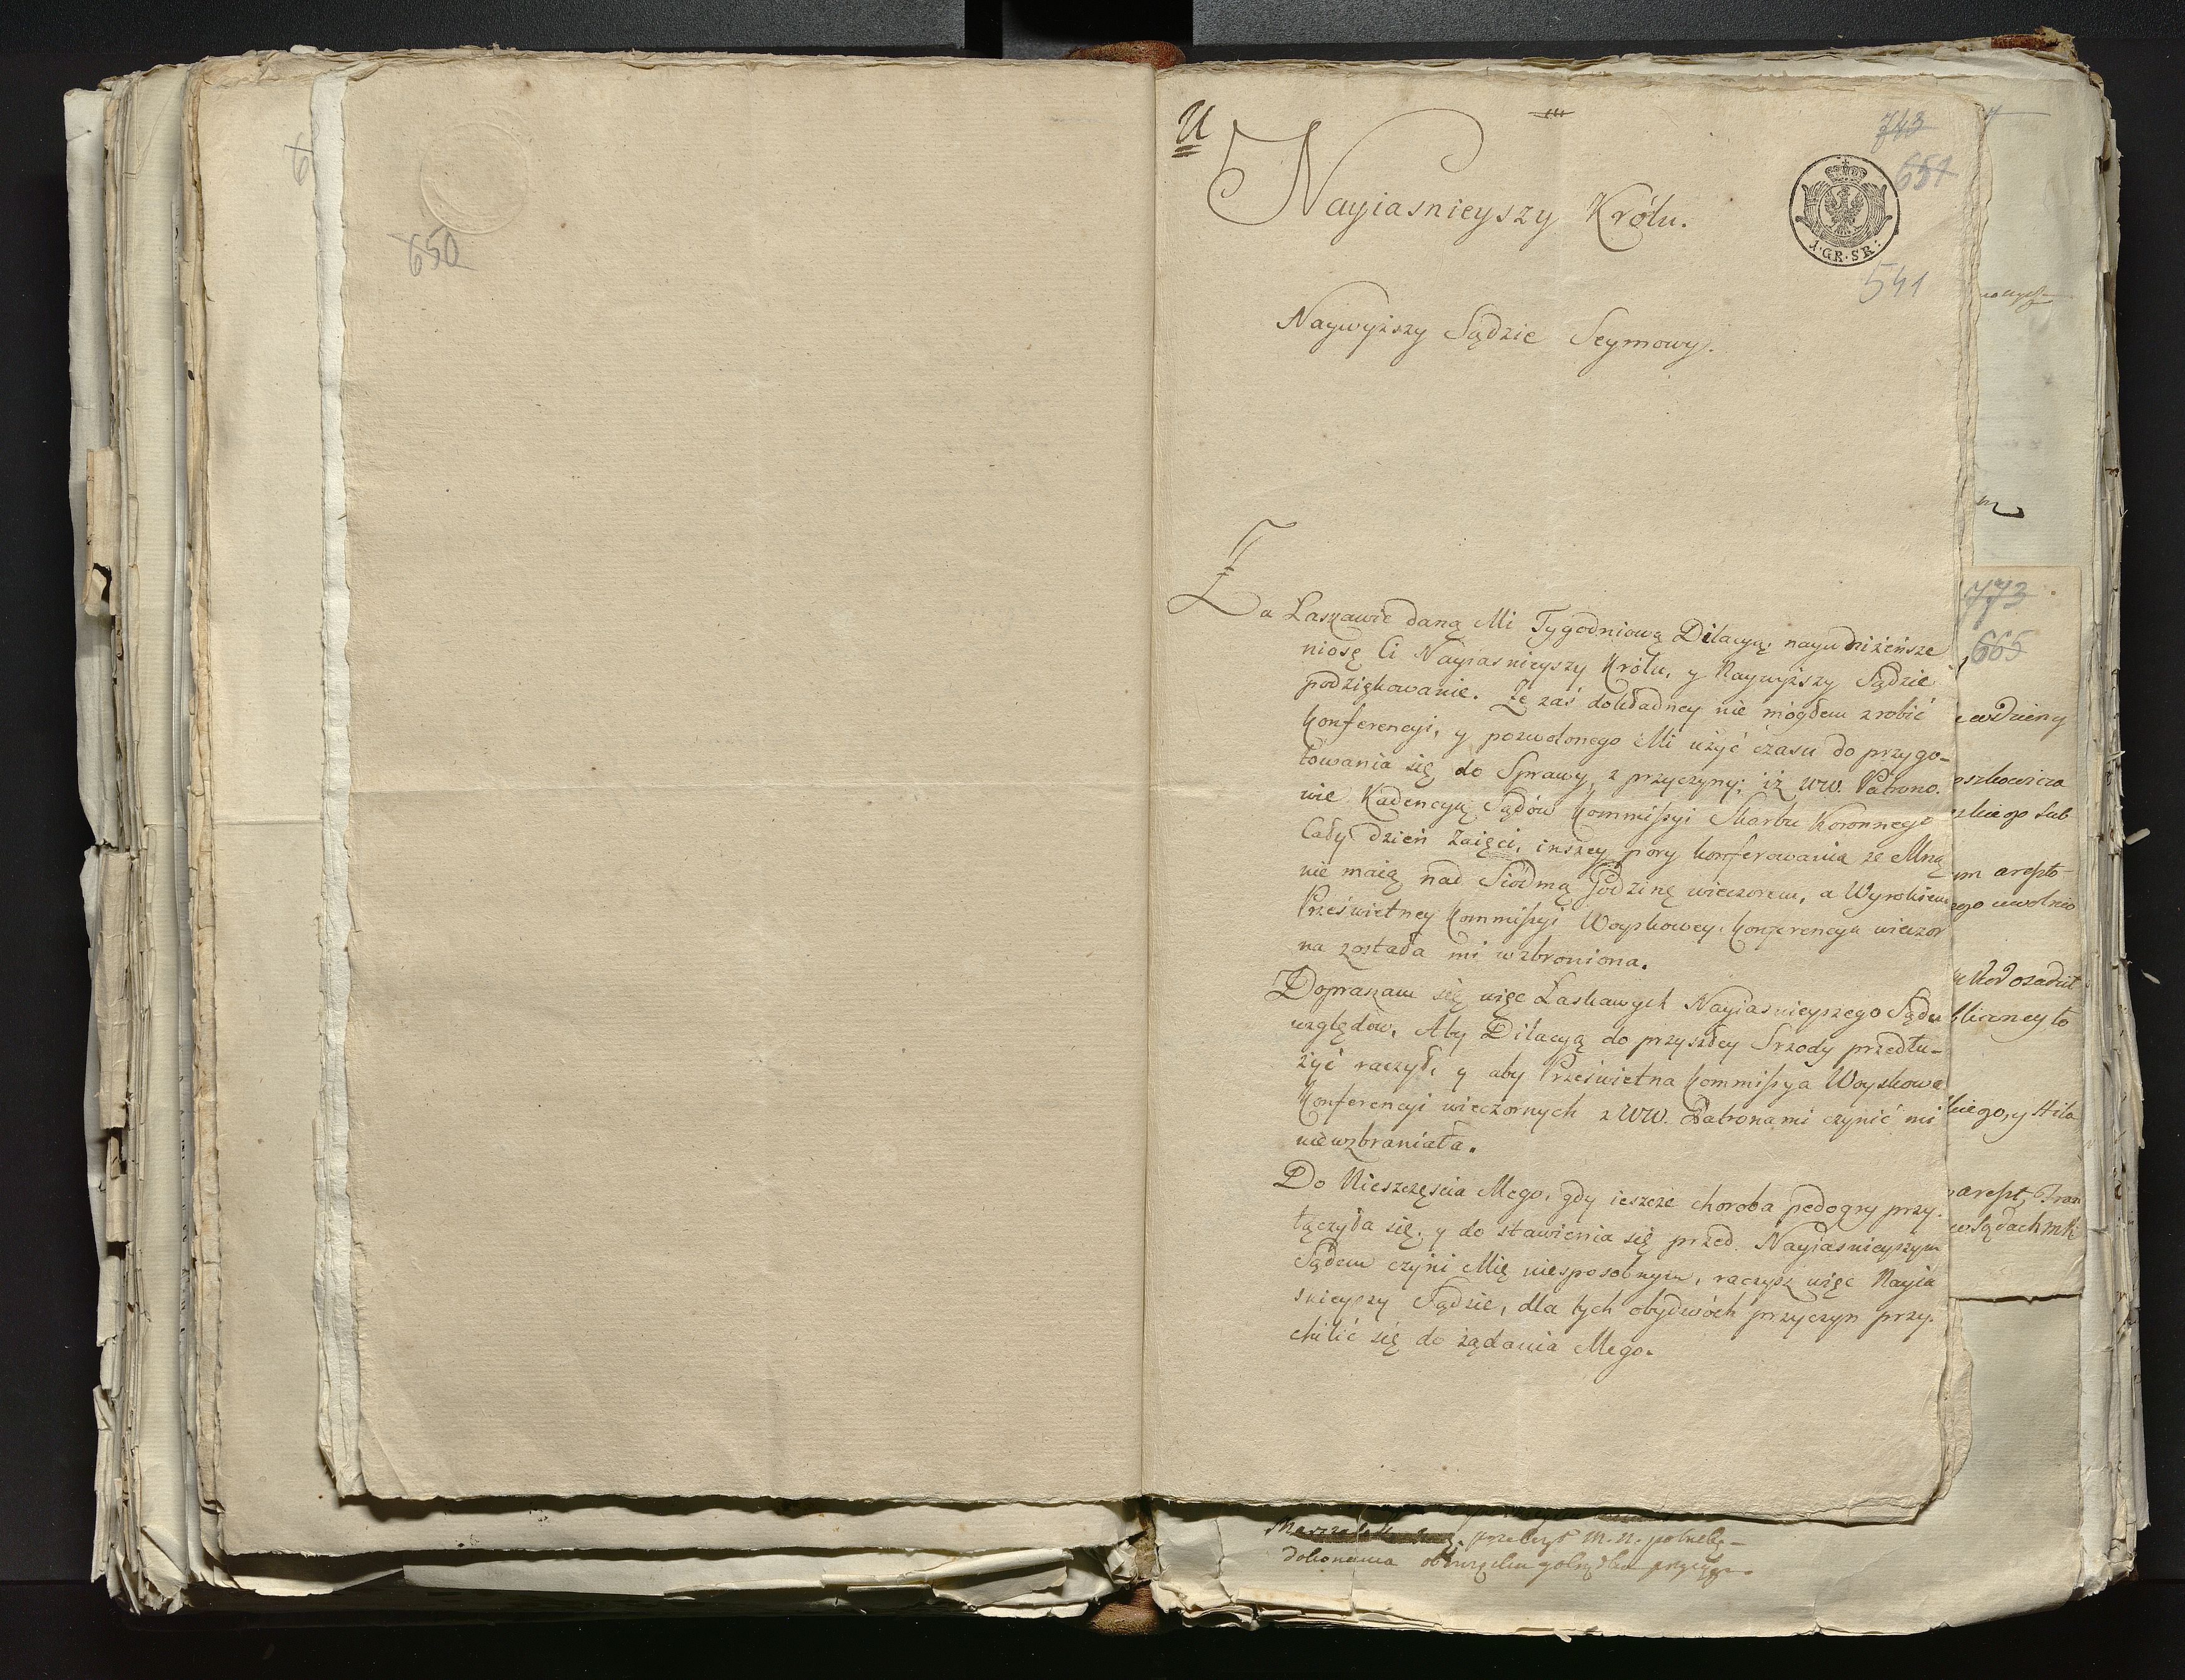 650
U
743
651
Nayiasnieyszy Królu.
1·GR·SR:
541
Naywyższy Sądzie Seymowy.
Za Łaskawie daną Mi Tygodniową Dilacyą, nayuniżeńsze
niosę Ci Nayiasnieyszy Królu, y Naywyższy Sądzie
podziękowanie. Że zaś dokładney nie mógłem zrobić
Konferencyi, y pozwolonego Mi użyć czasu do przygo-
towania się do Sprawy, z przyczyny, iż WW. Patrono.
wie Kadencyą Sądów Kommissyi Skarbu Koronnego
Cały dzień Zaięci, inszey pory konferowania ze Mną
nie maią nad Siódmą godzinę wieczorem, a Wyrokiem
Prześwietney Kommissyi Woyskowey, Konferencya wieczor
na została mi wzbroniona.
Dopraszam się więc Łaskawych Nayiasnieyszego Sądu
względów, Aby Dilacyą do przyszłey Srzody przedłu-
żyć raczył, y aby Prześwietna Kommissya Woyskowa
Konferencyi wieczornych z WW. Patronami czynić mi
nie wzbraniała.
Do Nieszczęścia Mego, gdy ieszcze choroba pedogry przy.
łączyła się, y do stawienia się przed Nayiasnieyszym
Sądem czyni Mię niesposobnym, raczysz więc Nayia
snieyszy Sądzie, dla tych obydwóch przyczyn przy.
chilić się do żądania Mego.
773
665
oszkowicza
skiego sub
ego uwolnio
bliczney to
kiego, y Hila
w Sądach mk